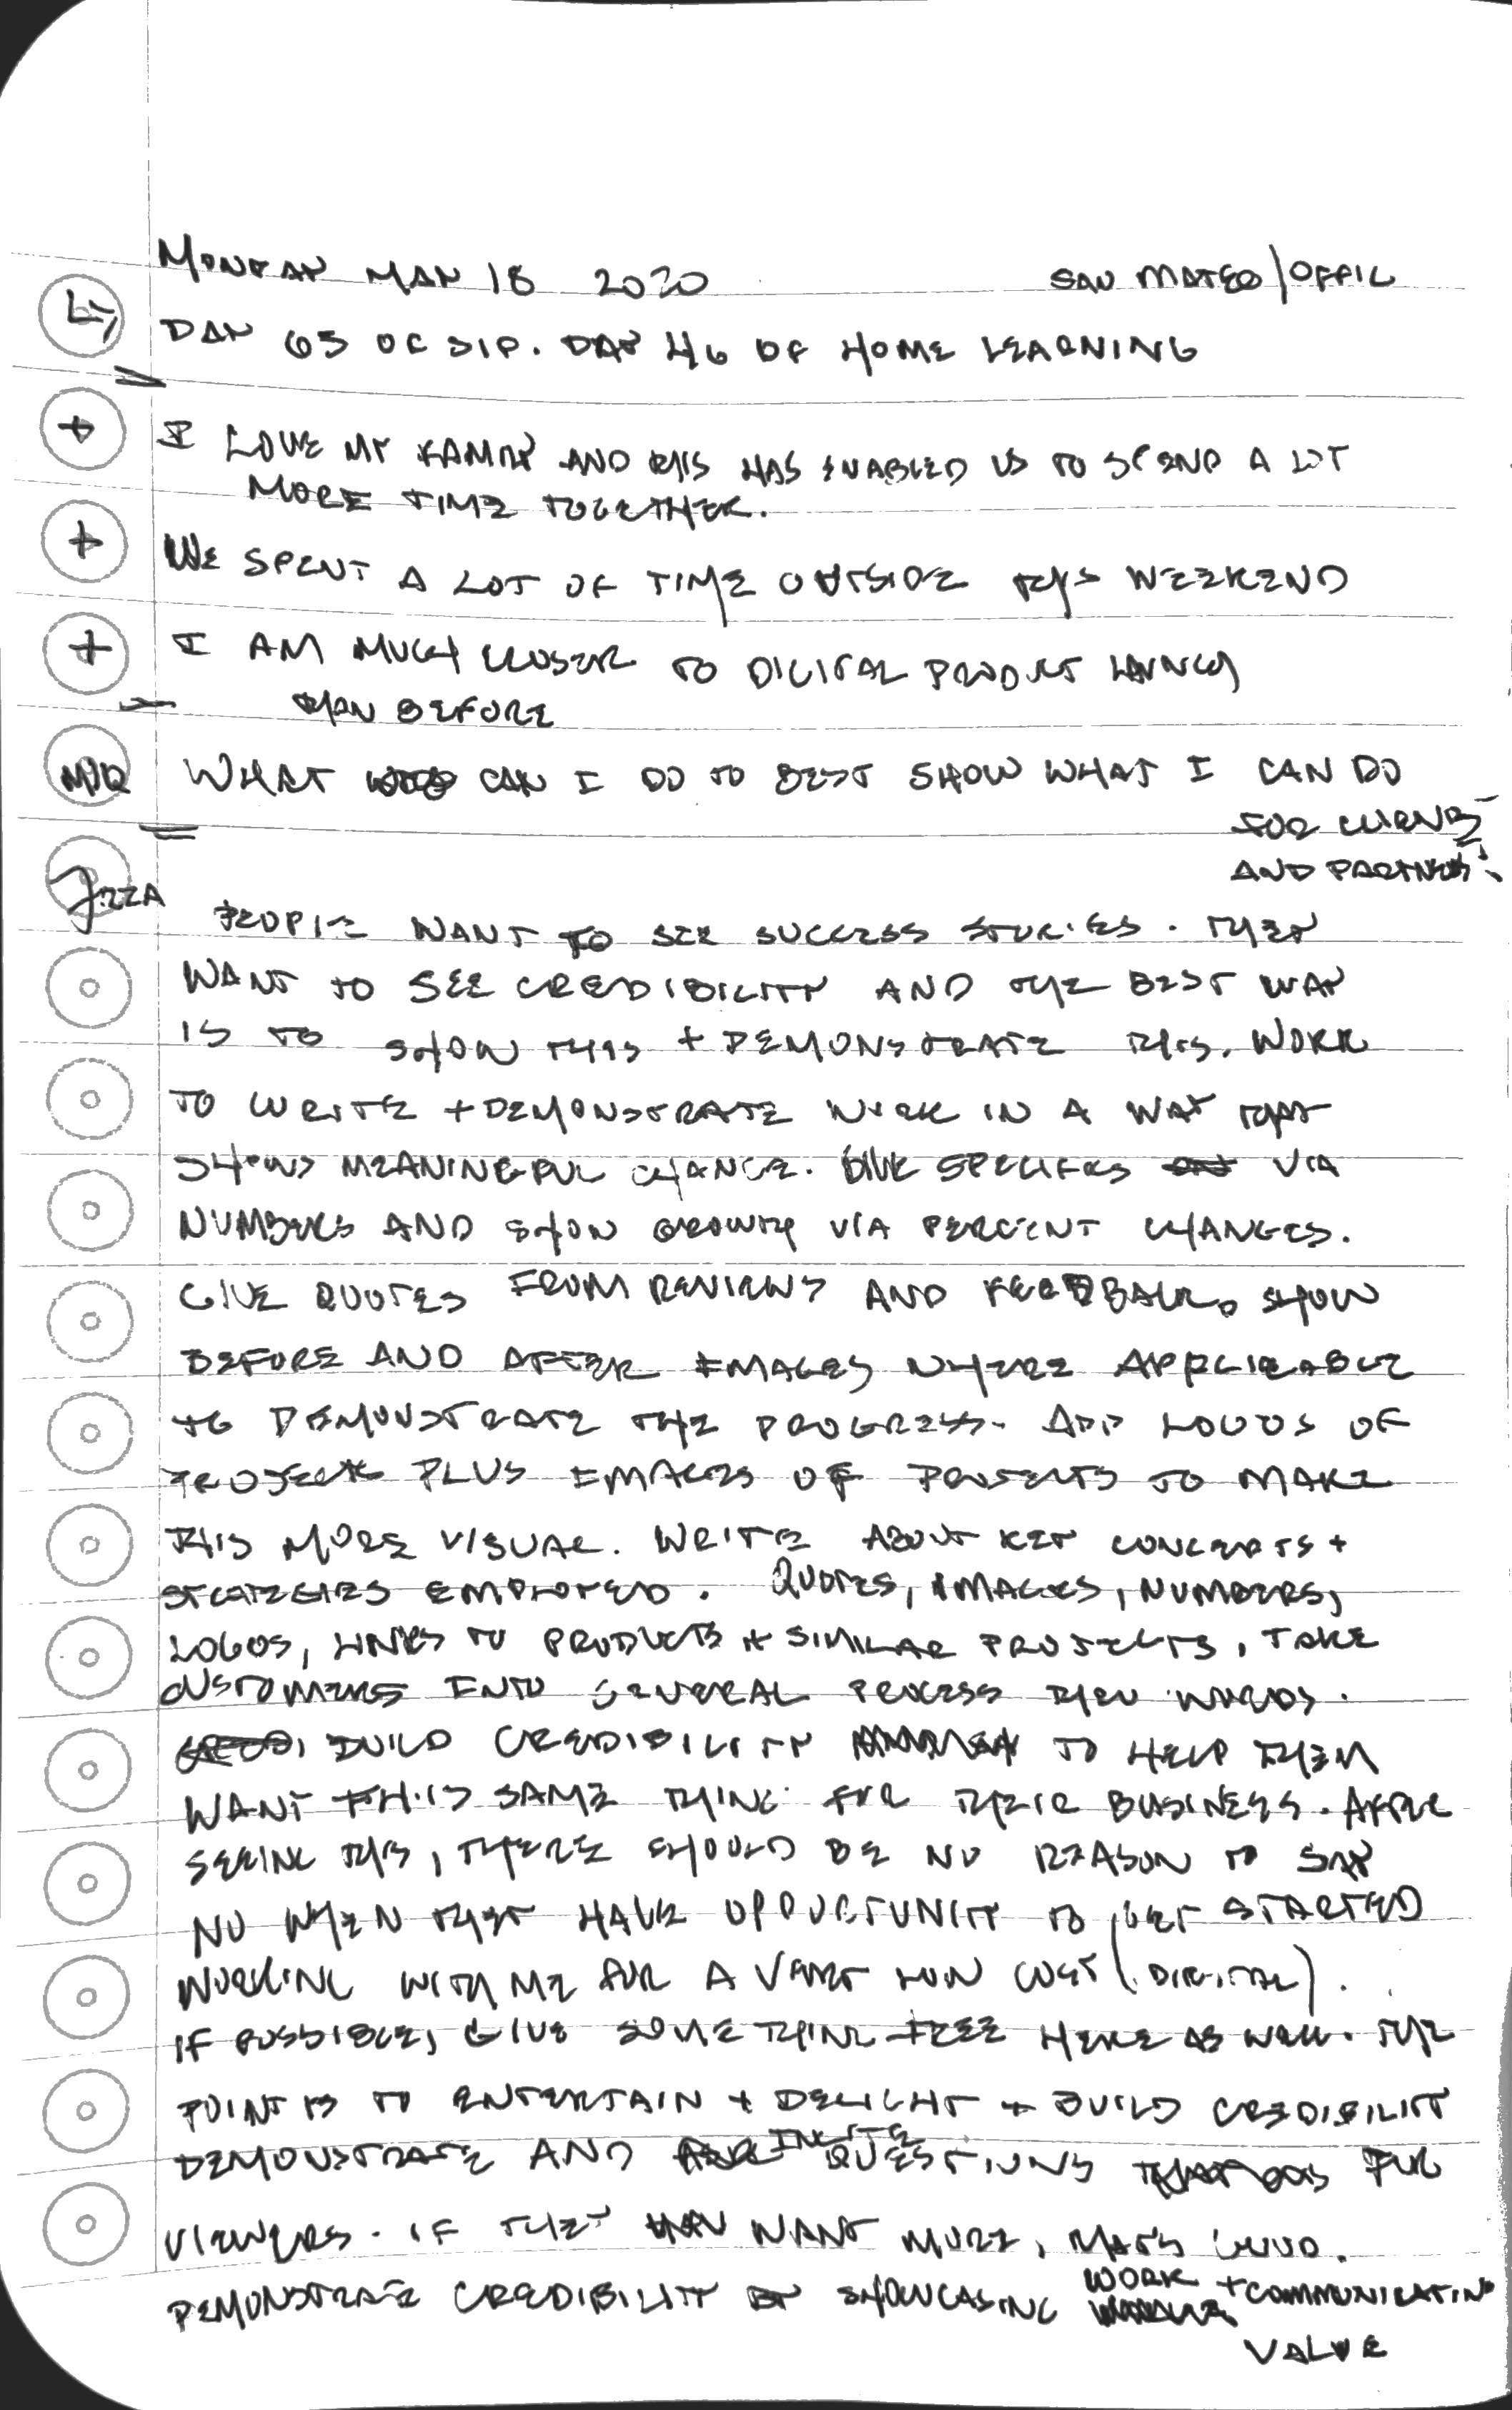 MONDAY MAY 18 2020 SAN MATEO/OFFIC
DAY 63 OF SIP. DAY 46 OF HOME LEARNING
+ I LOVE MY FAMILY AND THIS HAS ENABLED US TO SPEND A LOT
MORE TIME TOGETHER.
+ WE SPENT A LOT OF TIME OUTSIDE THIS WEEKEND
+ I AM MUCH CLOSER TO DIGITAL PRODUCT LAUNCH
THAN BEFORE
MIQ WHAT CAN I DO TO BEST SHOW WHAT I CAN DO
FOR CLIENTS
AND PARTNERS?
PEOPLE WANT TO SEE SUCCESS STORIES. THEY
WANT TO SEE CREDIBILITY AND THE BEST WAY
IS TO SHOW THIS + DEMONSTRATE THIS. WORK
TO WRITE + DEMONSTRATE WORK IN A WAY THAT
SHOWS MEANINGFUL CHANGE. GIVE SPECIFICS VIA
NUMBERS AND SHOW GROWTH VIA PERCENT CHANGES.
GIVE QUOTES FROM REVIEWS AND FEEDBACK. SHOW
BEFORE AND AFTER IMAGES WHERE APPLICABLE
TO DEMONSTRATE THE PROGRESS. ADD LOGOS OF
PROJECTS PLUS IMAGES OF PROJECTS TO MAKE
THIS MORE VISUAL. WRITE ABOUT KEY CONCEPTS +
STRATEGIES EMPLOYED. QUOTES, IMAGES, NUMBERS,
LOGOS, LINKS TO PRODUCTS + SIMILAR PROJECTS, TAKE
CUSTOMERS INTO GENERAL PROCESS THRU WORDS.
BUILD CREDIBILITY TO HELP THEM
WANT THIS SAME THING FOR THEIR BUSINESS. AFTER
SEEING THIS, THERE SHOULD BE NO REASON TO SAY
NO WHEN THEY HAVE OPPORTUNITY TO GET STARTED
WORKING WITH ME FOR A VERY LOW COST (DIGITAL).
IF POSSIBLE, GIVE SOMETHING FREE HERE AS WELL. THE
POINT IS TO ENTERTAIN + DELIGHT + BUILD CREDIBILITY
DEMONSTRATE AND INVITE QUESTIONS FOR
VIEWERS. IF THEY WANT MORE, THAT'S GOOD.
DEMONSTRATE CREDIBILITY BY SHOWCASING WORK + COMMUNICATING
VALUE